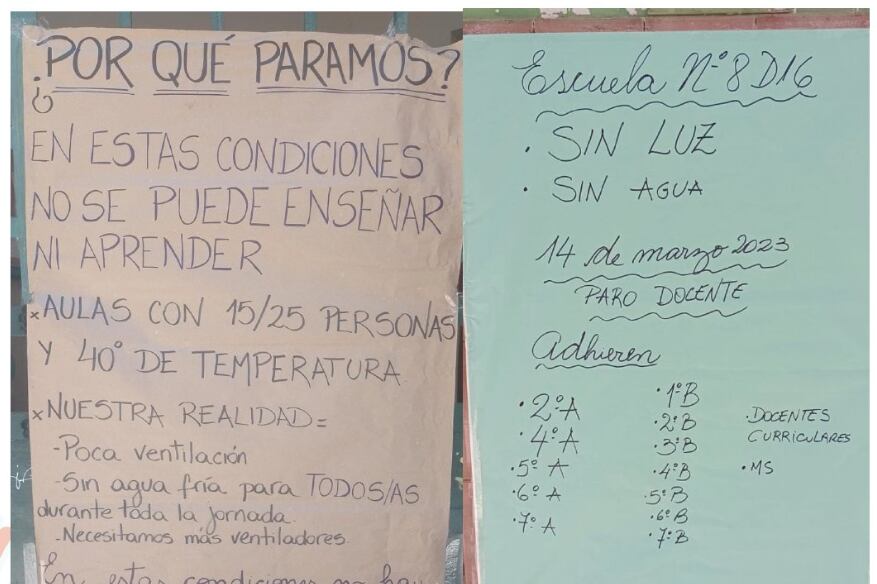 ¿POR QUÉ PARAMOS?
EN ESTAS CONDICIONES
NO SE PUEDE ENSEÑAR
NI APRENDER
x AULAS CON 15/25 PERSONAS
Y 40° DE TEMPERATURA
x NUESTRA REALIDAD=
-Poca ventilación
-Sin agua fría para TODOS/AS
durante toda la jornada.
-Necesitamos más ventiladores.
En estas condiciones no hay
Escuela N°8 D16
· SIN LUZ
· SIN AGUA
14 de marzo 2023
PARO DOCENTE
Adhieren
· 2°A
· 4°A
· 5° A
· 6° A
· 7° A
· 1°B
· 2°B
· 3°B
· 4°B
· 5°B
· 6° B
· 7°B
· DOCENTES
CURRICULARES
· MS